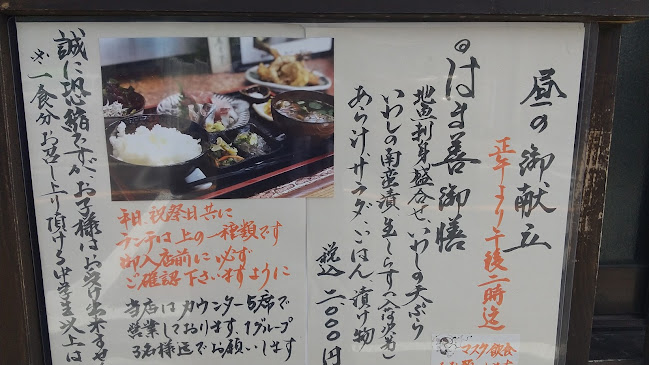 昼の御献立
正午より午後二時迄
はま善御膳
地魚刺身盛合せ、いわしの天ぷら
いわしの南蛮漬、生しらす(入荷次第)
あら汁、サラダ、ごはん、漬け物
税込 二、000円
平日、祝祭日共に
ランチは上の一種類です
御入店前に必ず
ご確認下さいますように
当店はカウンター5席で
営業しております。1グループ
3名様迄でお願いします
誠に恐縮ですが、お子様はお受け出来ません
※一食分お召し上り頂ける中学生以上は
マスク飲食